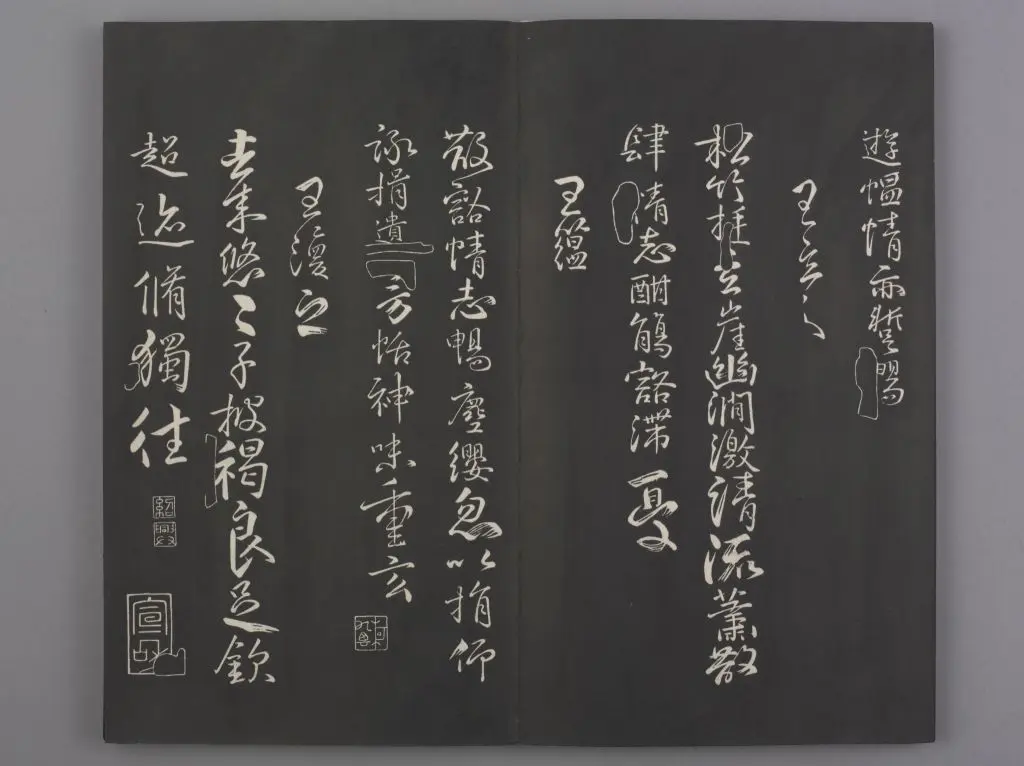 遊愠情亦暫暢
王玄之
松竹挺崖幽澗激清流蕭散
肆情志酣觴豁滯憂
王蘊
散豁情志暢塵纓忽以捐仰
詠揖遺芳怡神味重玄
王渙之
去來悠〻子披褐良足欽
超迹脩獨往
紹興